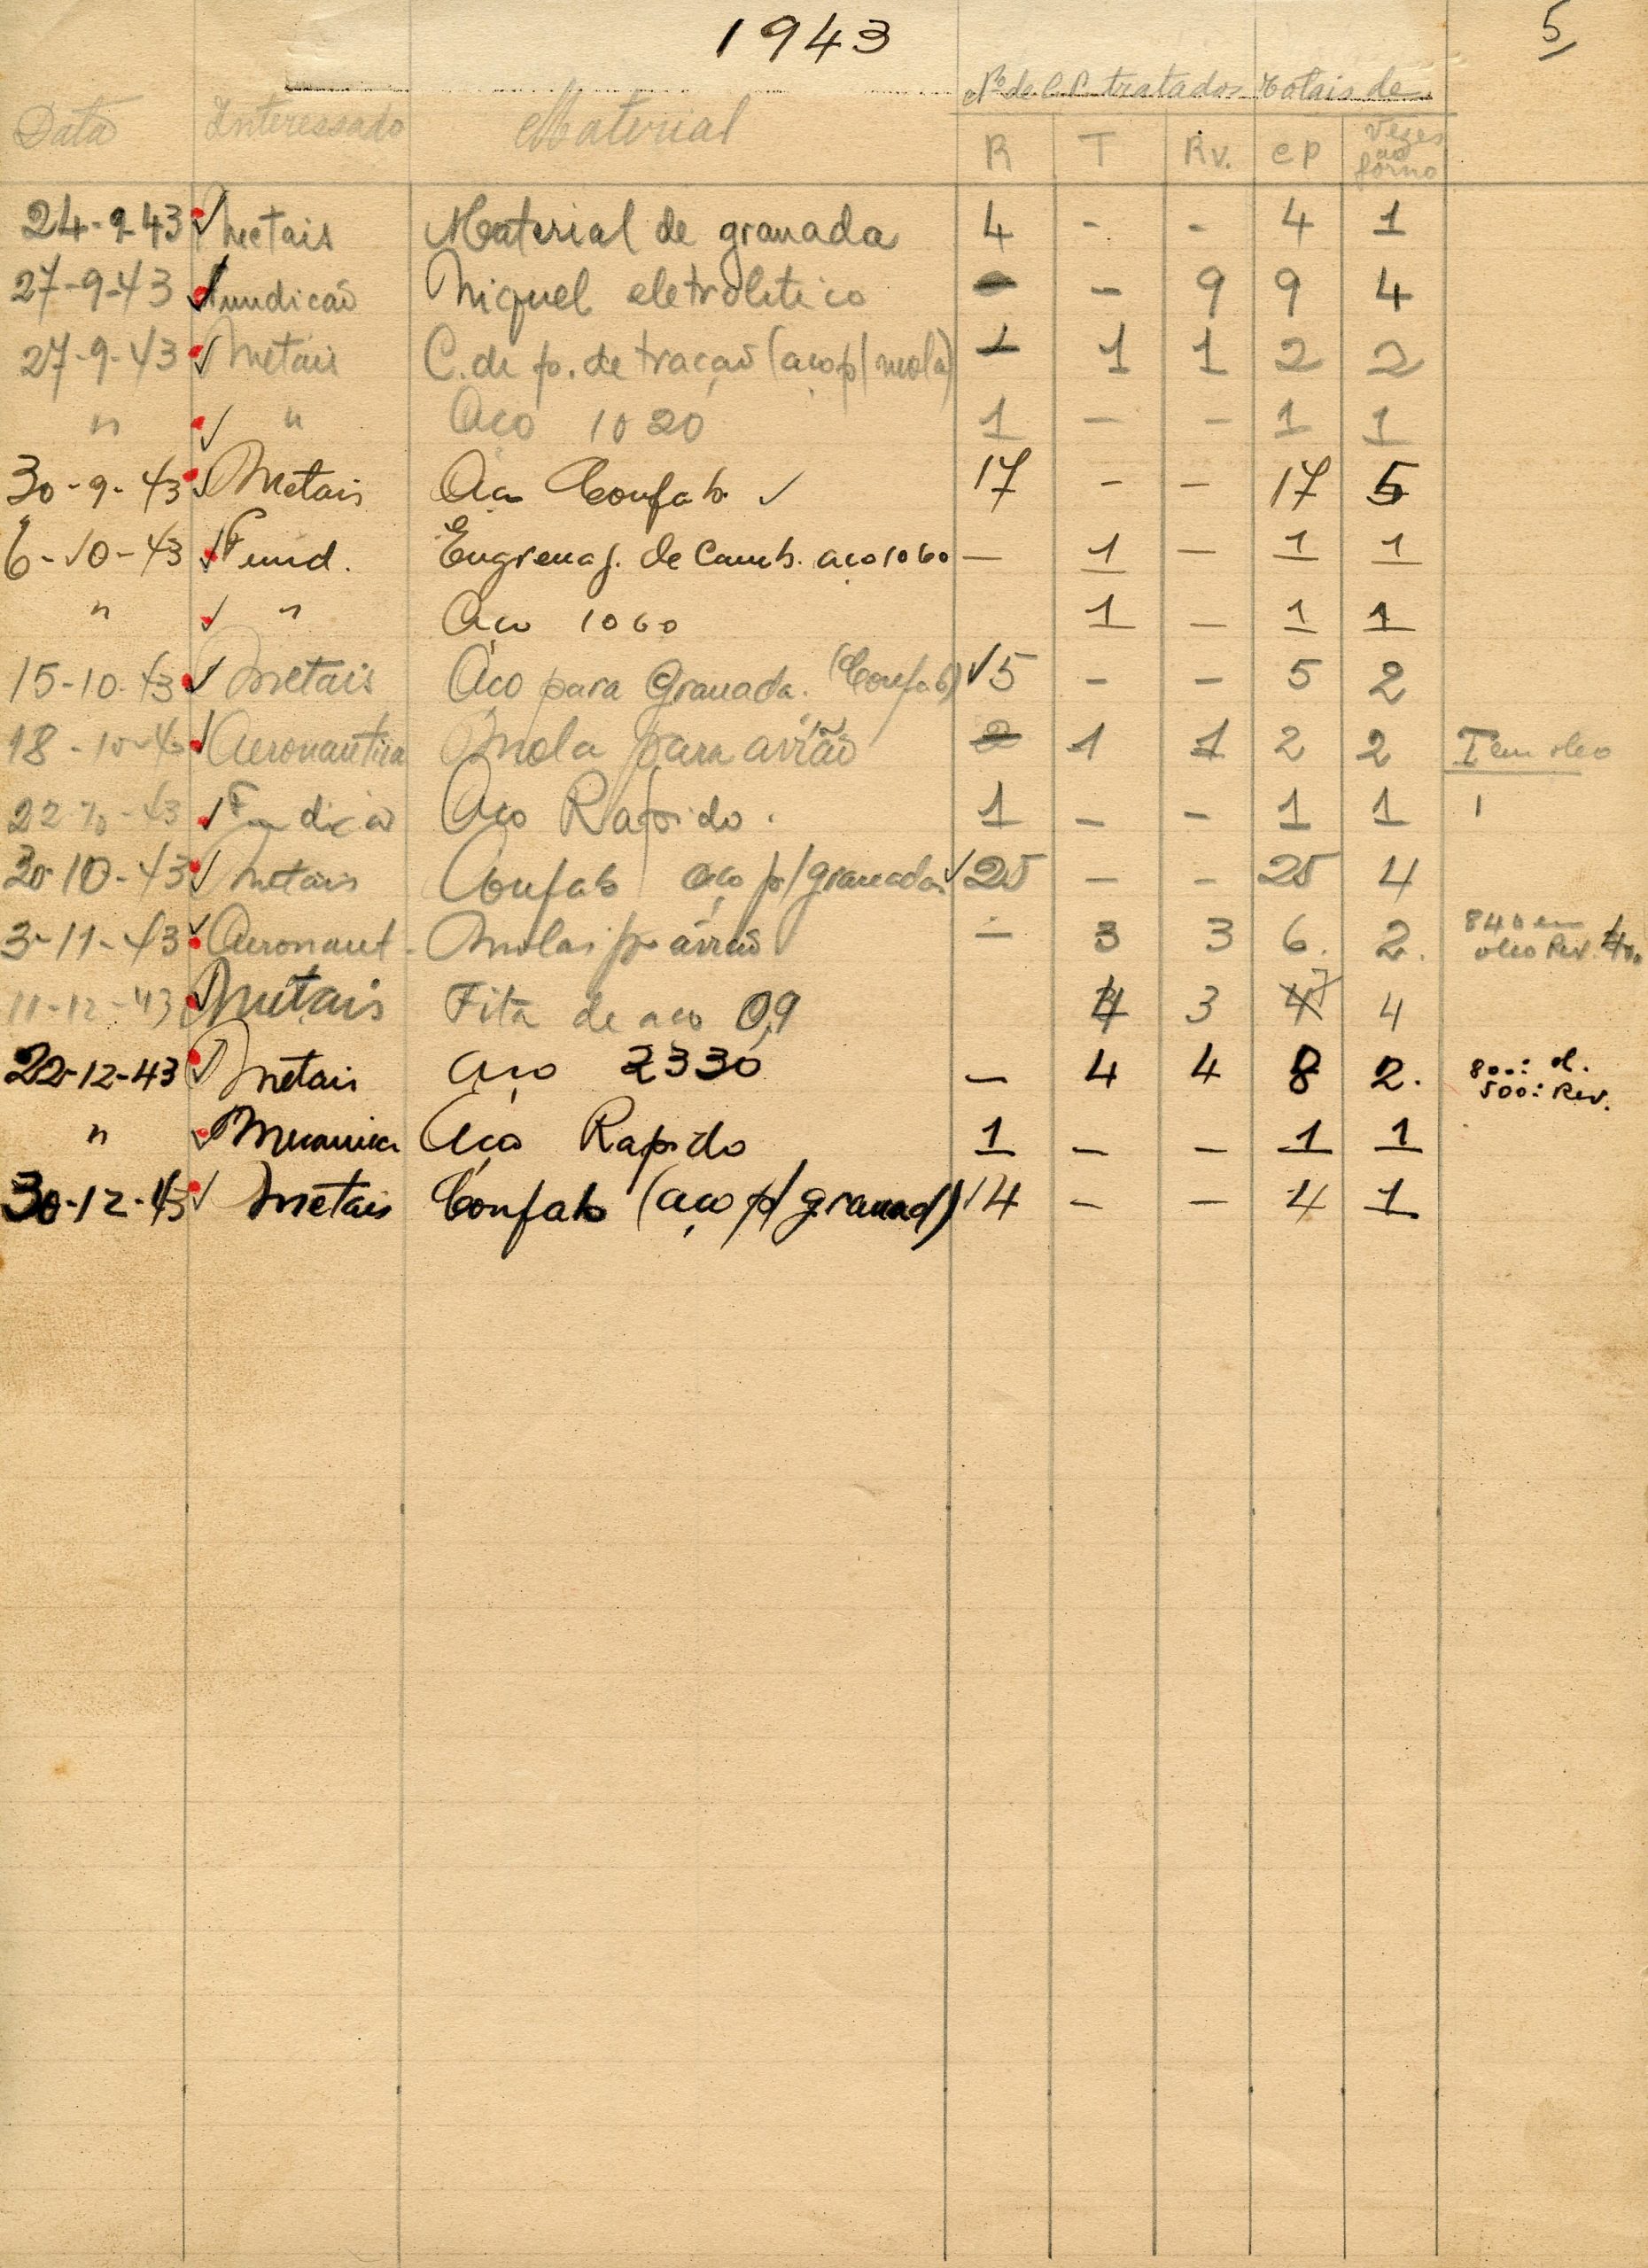 1943 5
Nº de C.P. tratados Totais de
Data Interessado Material R T Rv. CP Vezes ao forno
24-9-43 ✓ Metais Material de granada 4 - - 4 1
27-9-43 ✓ Fundicão Niquel eletrolitico - - 9 9 4
27-9-43 ✓ Metais C. de p. de tracão (aço p/ mola) - 1 1 2 2
" ✓ " Aço 1020 1 - - 1 1
30-9-43 ✓ Metais Aço Confab ✓ 17 - - 17 5
6-10-43 ✓ Fund. Engrenag. de Camb. aço 1060 - 1 - 1 1
" ✓ " Aço 1060 1 - 1 1
15-10-43 ✓ Metais Aço para Granada. (Confab) ✓ 5 - - 5 2
18-10-43 ✓ Aeronautica Mola para avião 2 1 1 2 2 T em oleo
22-10-43 ✓ Fundicão Aço Rapido. 1 - - 1 1
30-10-43 ✓ Metais Confab aço p/ granadas ✓ 25 - - 25 4
3-11-43 ✓ Aeronaut. Molas p. avião - 3 3 6. 2. 840 em
oleo Rev. 400
11-12-43 ✓ Metais Fita de aço 0,9 4 3 7 4
22-12-43 ✓ Metais Aço 2330 - 4 4 8 2. 800: ol.
500: Rev.
" ✓ Mecanica Aço Rapido 1 - - 1 1
30-12-43 ✓ Metais Confab (aço p/ granad) ✓ 4 - - 4 1